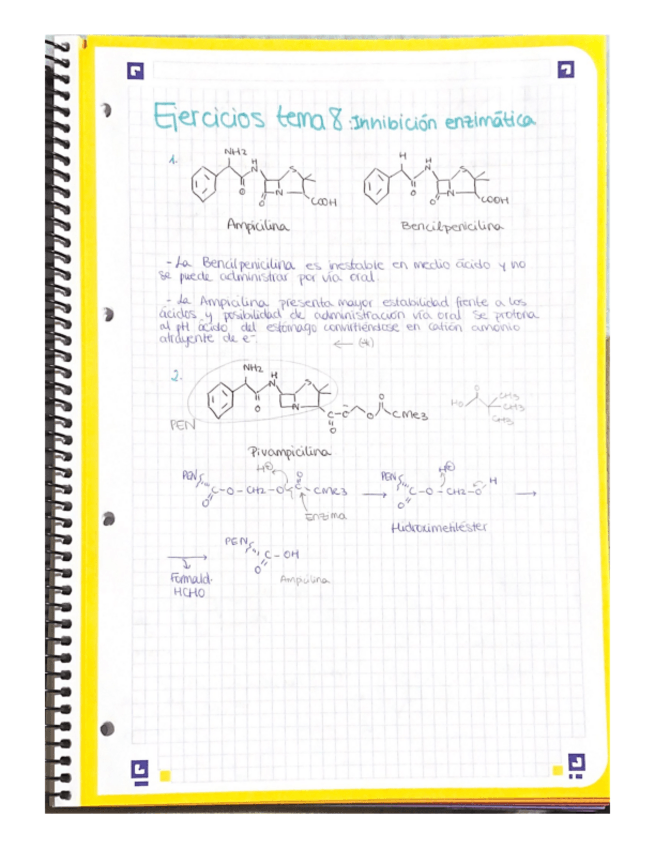 Ejercicios tema 8: Innibición enzimática
1.
NH2
H
N
S
O
O
N
COOH
Ampicilina
H
H
N
S
O
O
N
COOH
Bencilpenicilina
- La Bencilpenicilina es inestable en medio ácido y no
se puede administrar por vía oral.
- La Ampicilina presenta mayor estabilidad frente a los
ácidos y posibilidad de administración vía oral se protona
al pH ácido del estómago convirtiéndose en catión amonio
atrayente de e-
2.
NH2
H
N
S
O
N
O
O
O
CMe3
PEN
Pivampicilina
HO
O
CH3
CH3
CH3
PEN
H⊕
O
C-O-CH2-O-C-CMe3
O
Enzima
PEN
H⊕
H
C-O-CH2-O
O
Hidroximetiléster
Formald.
HCHO
PEN
C-OH
O
Ampicilina